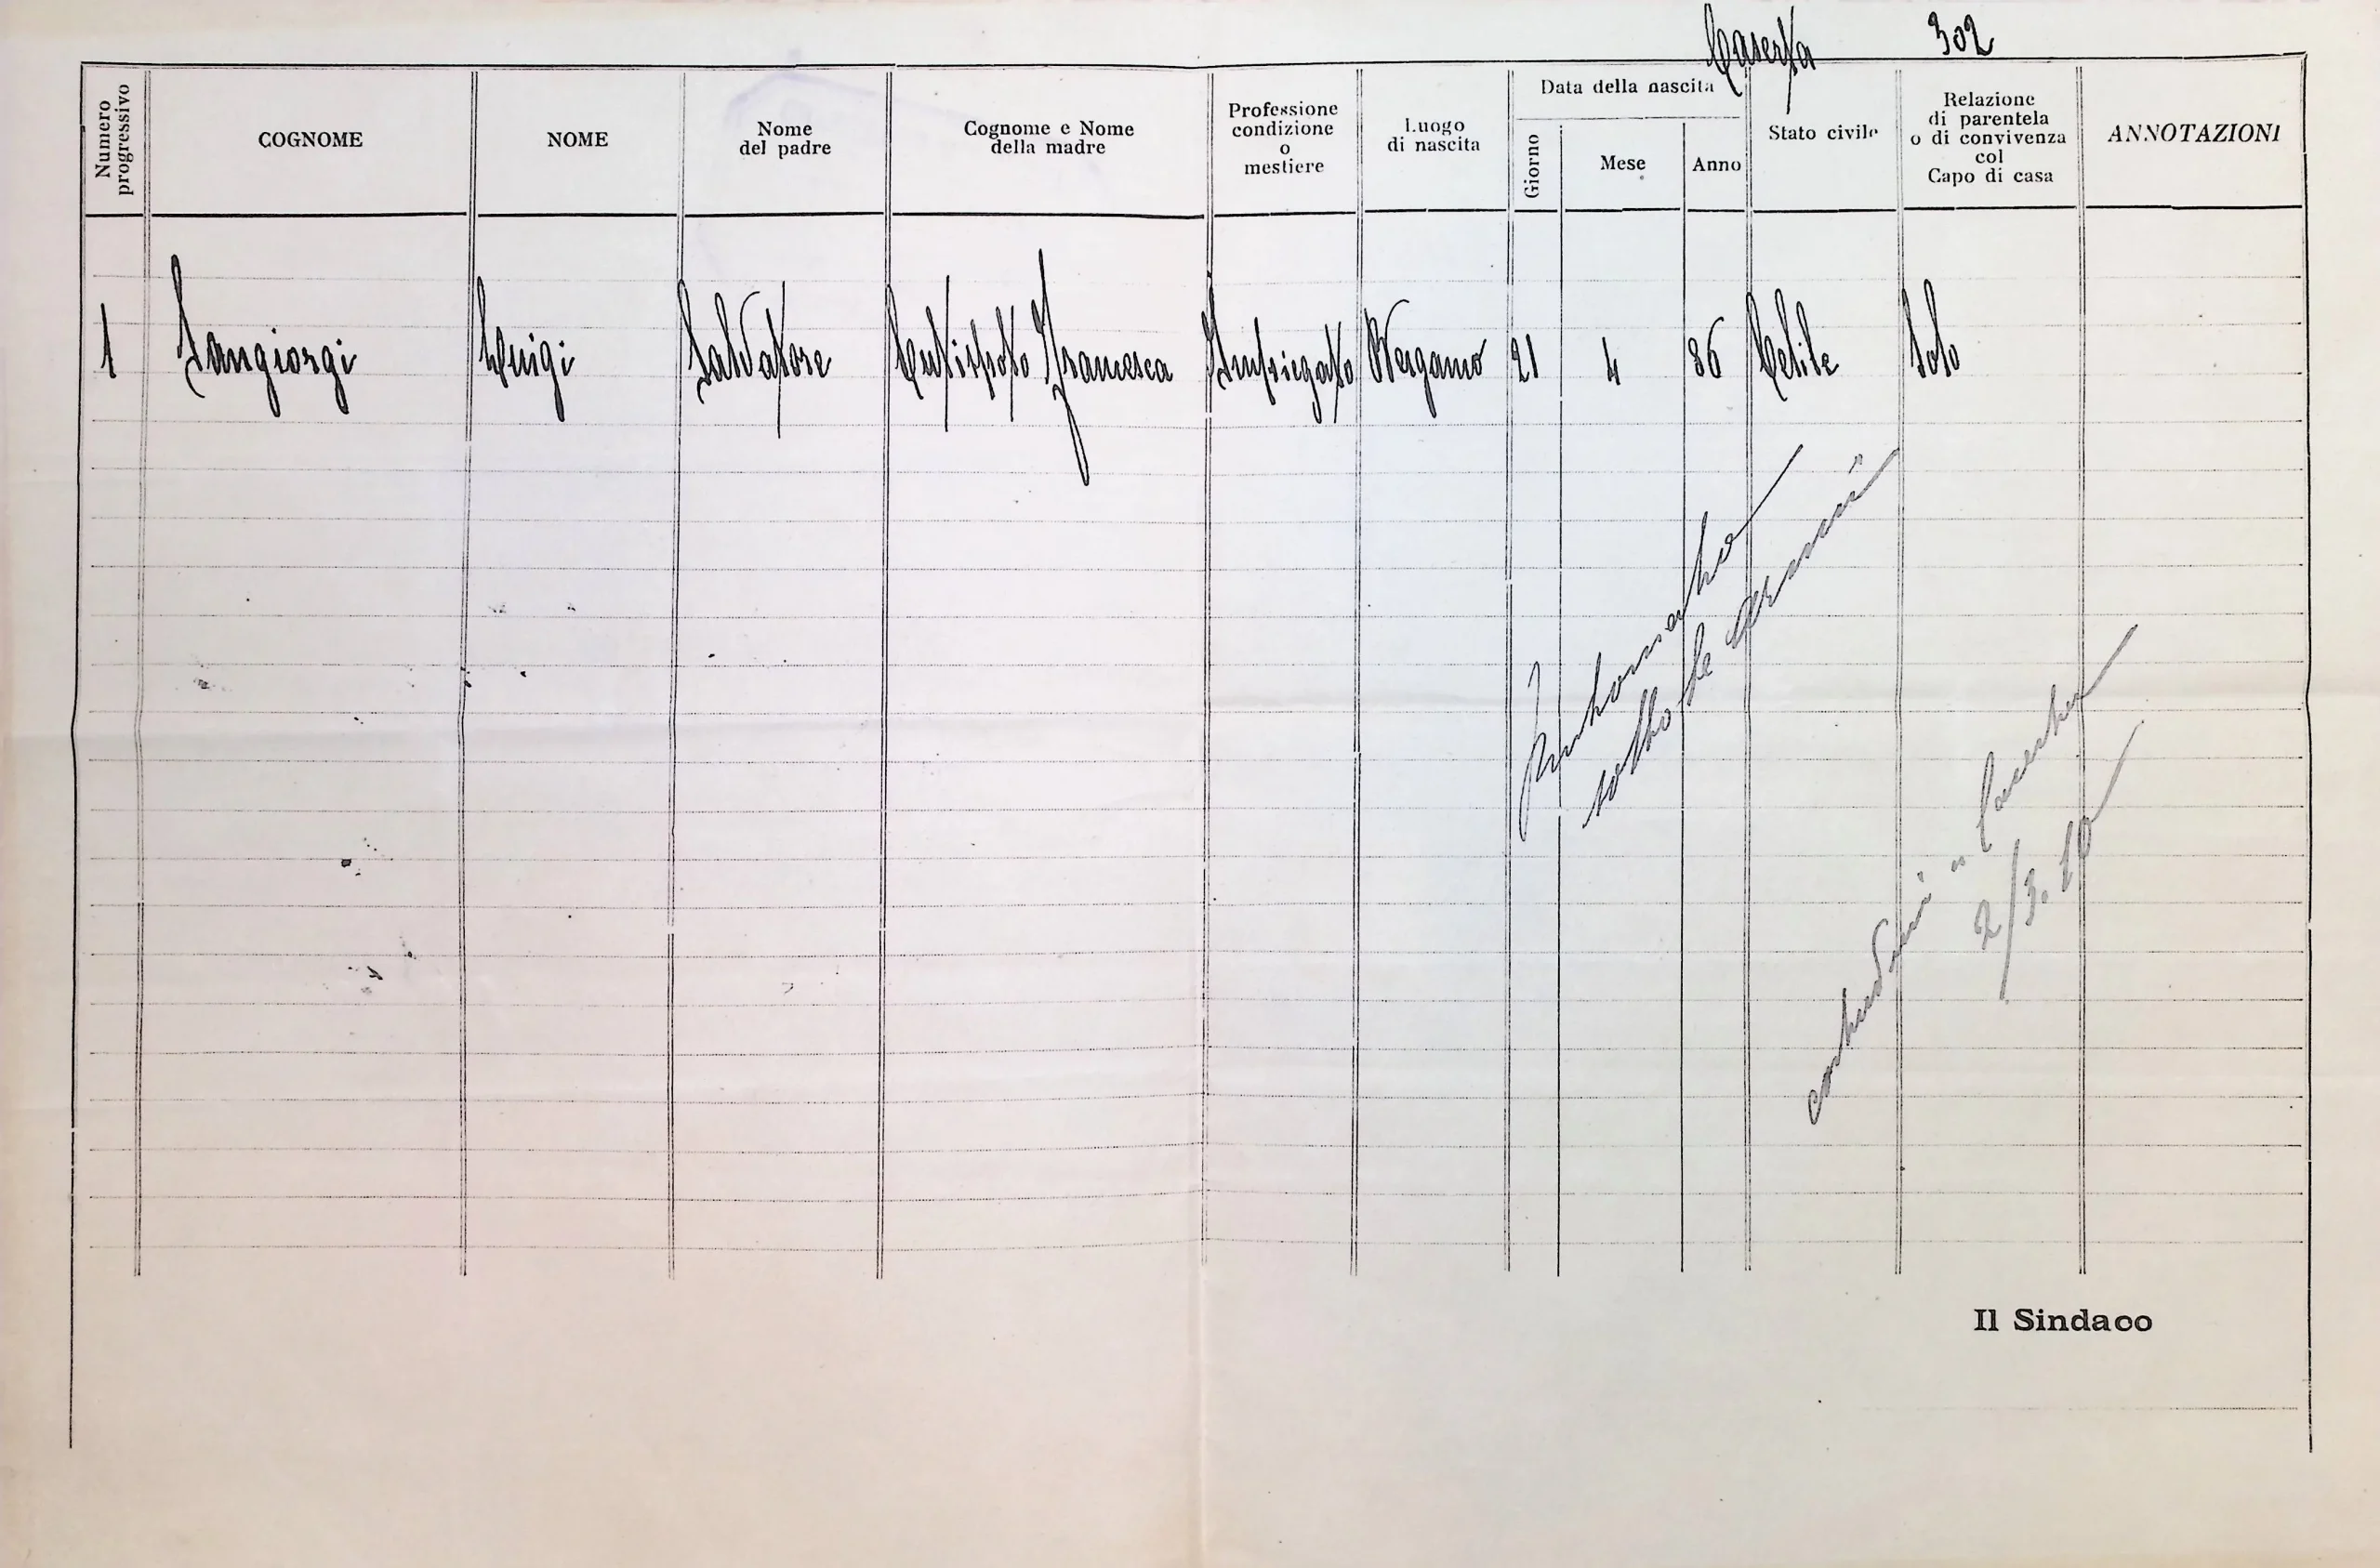 Caserta 302
Numero progressivo
COGNOME
NOME
Nome del padre
Cognome e Nome della madre
Professione condizione o mestiere
Luogo di nascita
Data della nascita
Giorno
Mese
Anno
Stato civile
Relazione di parentela o di convivenza col Capo di casa
ANNOTAZIONI
1 Sangiorgi Luigi Salvatore Francesca Impiegato Bergamo 21 4 86 Celibe Solo
sotto le
2/3.
Il Sindaco